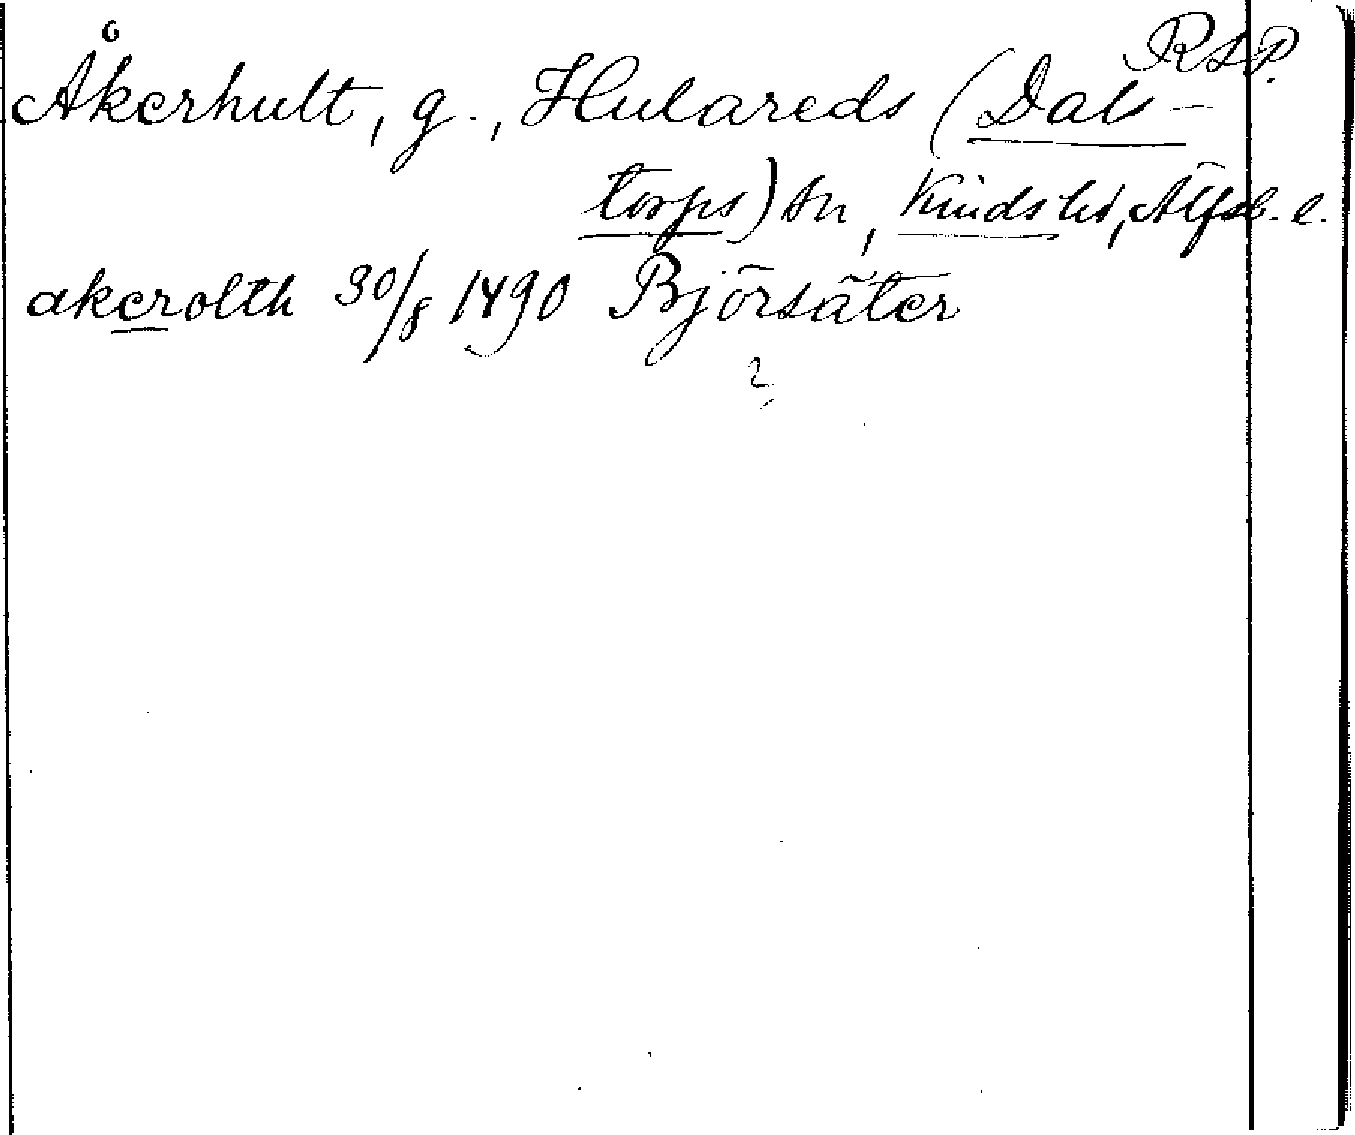 RAP.
Åkerhult, g., Hulareds (Dals-
torps) sn, Kinds hd, Älfsb. l.
akerolth 30/8 1490 Björsäter
?